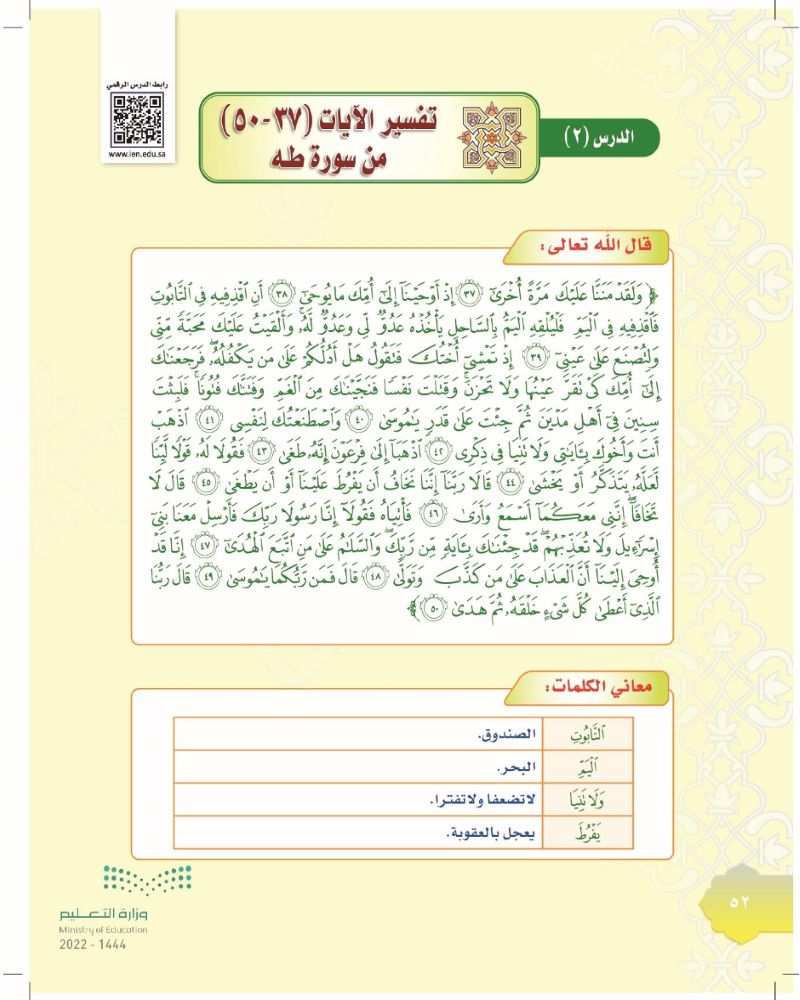 رابط الدرس الرقمي
www.ien.edu.sa
الدرس (٢)
تفسير الآيات (٣٧-٥٠)
من سورة طه
قال الله تعالى:
﴿ وَلَقَدْ مَنَنَّا عَلَيْكَ مَرَّةً أُخْرَىٰٓ ٣٧ إِذْ أَوْحَيْنَآ إِلَىٰٓ أُمِّكَ مَا يُوحَىٰٓ ٣٨ أَنِ ٱقْذِفِيهِ فِى ٱلتَّابُوتِ
فَٱقْذِفِيهِ فِى ٱلْيَمِّ فَلْيُلْقِهِ ٱلْيَمُّ بِٱلسَّاحِلِ يَأْخُذْهُ عَدُوٌّ لِّى وَعَدُوٌّ لَّهُۥ ۚ وَأَلْقَيْتُ عَلَيْكَ مَحَبَّةً مِّنِّى
وَلِتُصْنَعَ عَلَىٰ عَيْنِىٓ ٣٩ إِذْ تَمْشِىٓ أُخْتُكَ فَتَقُولُ هَلْ أَدُلُّكُمْ عَلَىٰ مَن يَكْفُلُهُۥ ۖ فَرَجَعْنَٰكَ
إِلَىٰٓ أُمِّكَ كَىْ تَقَرَّ عَيْنُهَا وَلَا تَحْزَنَ ۚ وَقَتَلْتَ نَفْسًا فَنَجَّيْنَٰكَ مِنَ ٱلْغَمِّ وَفَتَنَّٰكَ فُتُونًا ۚ فَلَبِثْتَ
سِنِينَ فِىٓ أَهْلِ مَدْيَنَ ثُمَّ جِئْتَ عَلَىٰ قَدَرٍ يَٰمُوسَىٰ ٤٠ وَٱصْطَنَعْتُكَ لِنَفْسِى ٤١ ٱذْهَبْ
أَنتَ وَأَخُوكَ بِـَٔايَٰتِى وَلَا تَنِيَا فِى ذِكْرِى ٤٢ ٱذْهَبَآ إِلَىٰ فِرْعَوْنَ إِنَّهُۥ طَغَىٰ ٤٣ فَقُولَا لَهُۥ قَوْلًا لَّيِّنًا
لَّعَلَّهُۥ يَتَذَكَّرُ أَوْ يَخْشَىٰ ٤٤ قَالَا رَبَّنَآ إِنَّنَا نَخَافُ أَن يَفْرُطَ عَلَيْنَآ أَوْ أَن يَطْغَىٰ ٤٥ قَالَ لَا
تَخَافَآ ۖ إِنَّنِى مَعَكُمَآ أَسْمَعُ وَأَرَىٰ ٤٦ فَأْتِيَاهُ فَقُولَآ إِنَّا رَسُولَا رَبِّكَ فَأَرْسِلْ مَعَنَا بَنِىٓ
إِسْرَٰٓءِيلَ وَلَا تُعَذِّبْهُمْ ۖ قَدْ جِئْنَٰكَ بِـَٔايَةٍ مِّن رَّبِّكَ ۖ وَٱلسَّلَٰمُ عَلَىٰ مَنِ ٱتَّبَعَ ٱلْهُدَىٰٓ ٤٧ إِنَّا قَدْ
أُوحِىَ إِلَيْنَآ أَنَّ ٱلْعَذَابَ عَلَىٰ مَن كَذَّبَ وَتَوَلَّىٰ ٤٨ قَالَ فَمَن رَّبُّكُمَا يَٰمُوسَىٰ ٤٩ قَالَ رَبُّنَا
ٱلَّذِىٓ أَعْطَىٰ كُلَّ شَىْءٍ خَلْقَهُۥ ثُمَّ هَدَىٰ ٥٠ ﴾
معاني الكلمات:
ٱلتَّابُوتِ الصندوق.
ٱلْيَمِّ البحر.
وَلَا تَنِيَا لاتضعفا ولاتفترا.
يَفْرُطَ يعجل بالعقوبة.
٥٢
وزارة التعليم
Ministry of Education
2022 - 1444